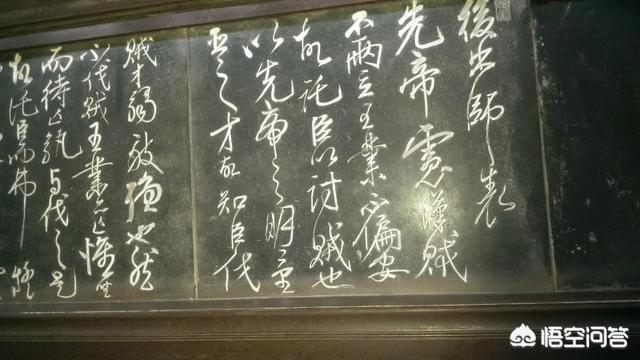 後出師表
先帝慮漢賊
不兩立王業不偏安
故託臣以討賊也
以先帝之明量
臣之才故知臣伐
賊才弱敵強也然
不伐賊王業亦亡惟坐
而待亡孰与伐之是
故託臣而弗疑
悟空问答